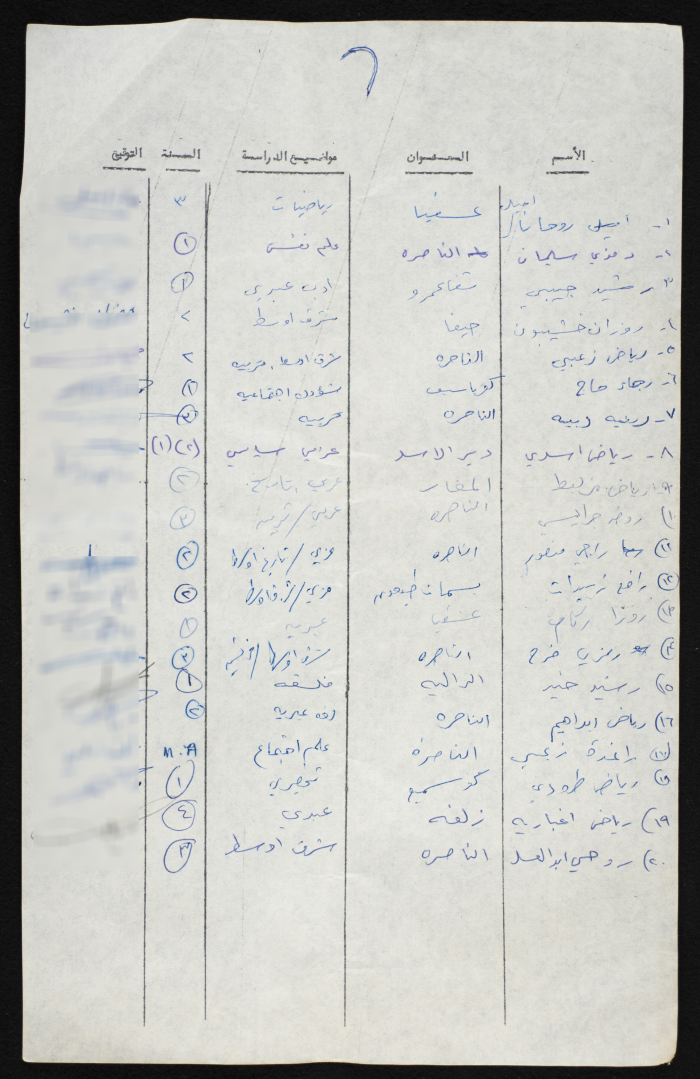 ر
الأسم العنوان مواضيع الدراسة السنة التوقيع
اميل
١- روحانا عسفيا رياضيات ٣
٢- رمزي سليمان الناصره علم نفس ١
٣- رشيد حبيبي شفاعمرو ادب عبري ١
٤- روزان خشيبون حيفا شرق اوسط ٢
٥- رياض زعبي الناصره شرق اوسط، عربيه ٢
٦- رجاء حاج كفرياسيف شؤون اجتماعيه ١
٧- دبيه الناصره عربيه ٣
٨- رياض اسدي دير الاسد سياسي (٢) (١)
رياض عربي، تاريخ ٢
١٠) روضه الناصره عربي / ٣
١١) راجي منصور الناصره عربي / تاريخ اوسط ٢
١٢) رافع زبيدات بسمات طبعون عربي / ٢
١٣) روزا عسفيا عبريه ١
١٤) رمزيا فرح الناصره شرق اوسط / ٣
١٥) رشيد خير الراميه فلسفه ١
١٦) رياض ابراهيم الناصره لغه عبريه ٢
١٧) راغدة زعبي الناصرة علم اجتماع M.A
١٨) رياض كوسميع تحضيري ١
١٩) رياض اغباريه زلفه عبري ٤
٢٠) روحي ابو العسل الناصره شرق اوسط ٣